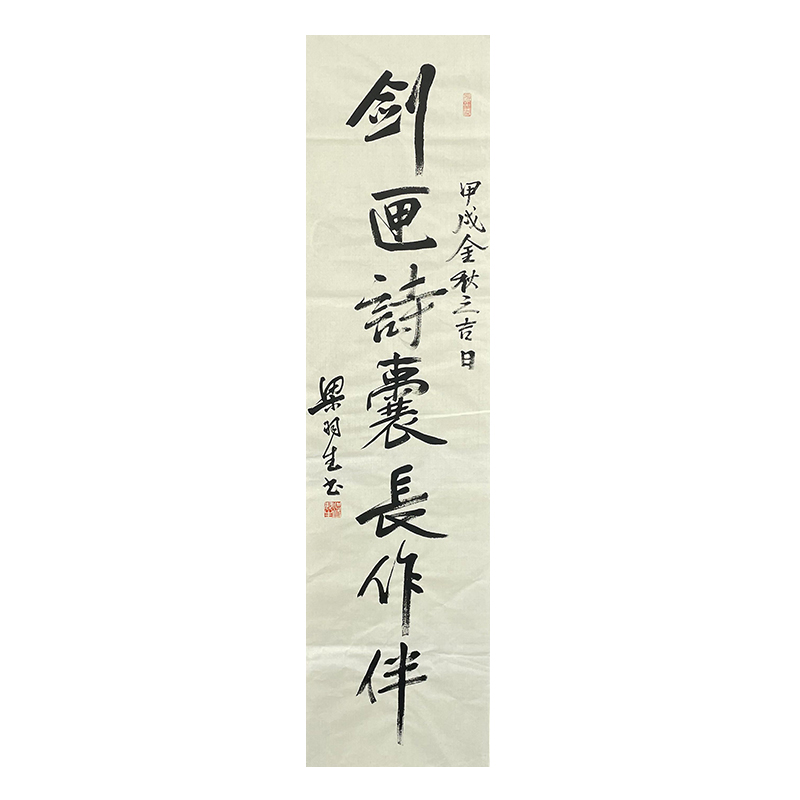 甲戌金秋三吉日
剑匣詩囊長作伴
梁羽生书